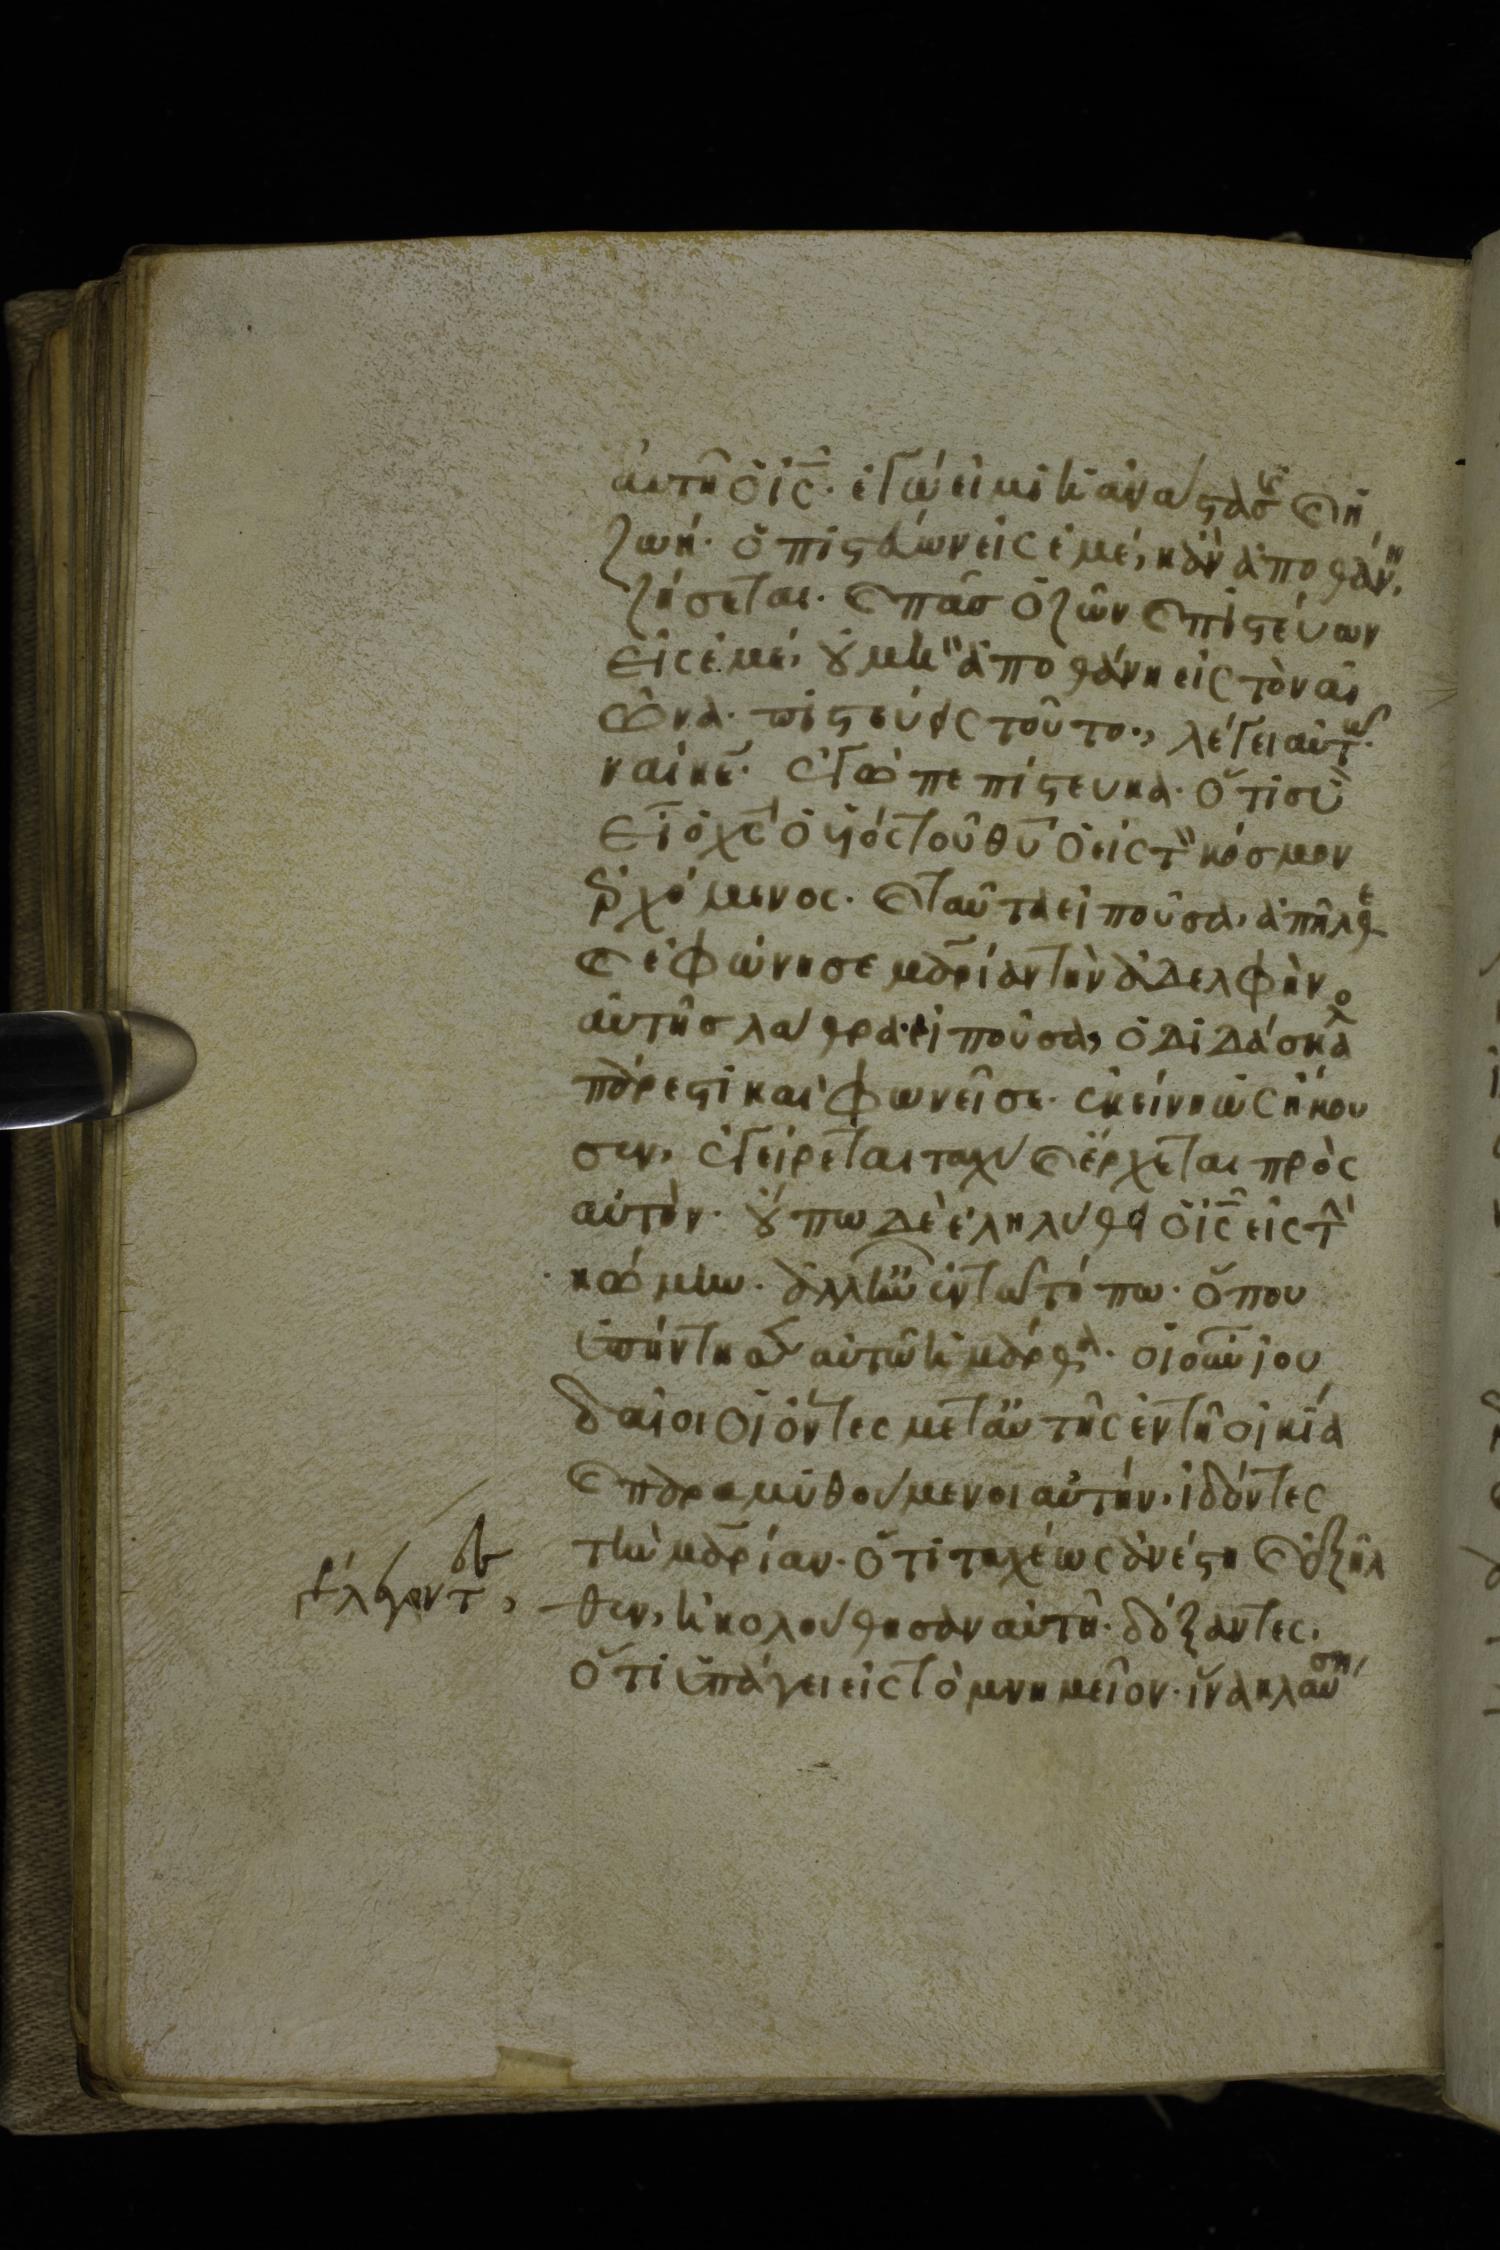 αυτῆ ὁ ἰ̅ς̅· ἐγώ εἰμι ἡ ἀνάστασις (καὶ) ἡ
ζωή· ὁ πιστεύων εἰς ἐμέ, κἂν ἀποθάνη,
ζήσεται· (καὶ) πᾶσ ὁ ζῶν (καὶ) πιστεύων
εἰς ἐμέ, οὐ μὴ ἀποθάνη εἰς τὸν αἰ
ῶνα· πιστεύεις τοῦτο., λέγει αὐτῶ·
ναί κ̅ε̅· ἐγὼ πεπίστευκα· ὅτι σὺ
εἶ ὁ χ̅ς̅ ὁ υἱός τοῦ θ̅υ̅ ὁ εἰς τὸν κόσμον
ἐρχόμενος· (καὶ) ταῦτα εἰποῦσα, ἀπῆλθε
(καὶ) ἐφώνησε μαρίαν τὴν ἀδελφὴν
αὐτῆσ λάθρα· εἰποῦσα, ὁ διδάσκαλο
πάρεστι και φωνεῖ σε· ἐκείνη ὡς ἤκου
σεν, ἐγείρεται ταχὺ (καὶ) ἔρχεται πρὸς
αὐτόν· οὔπω δὲ ἐληλύθει ὁ ἰ̅ς̅ εἰς τὴν
κώμην· ἀλλ' ἦν ἐν τῶ τόπω· ὅπου
ὑπήντησεν αὐτῶ ἡ μάρθα· οἱ οὖν ἰου
δαῖοι οἱ ὄντες μετ' αὐτῆς ἐν τῆ οἰκία
(καὶ) παραμυθούμενοι αὐτήν, ἰδόντες
τὴν μαρίαν· ὅτι ταχέως ἀνέστη (καὶ) ἐξῆλ
θεν, ἠκολούθησαν αὐτῆ· δόξαντες·
ὅτι ὑπάγει εἰς τὸ μνημεῖον· ἵνα κλαύση